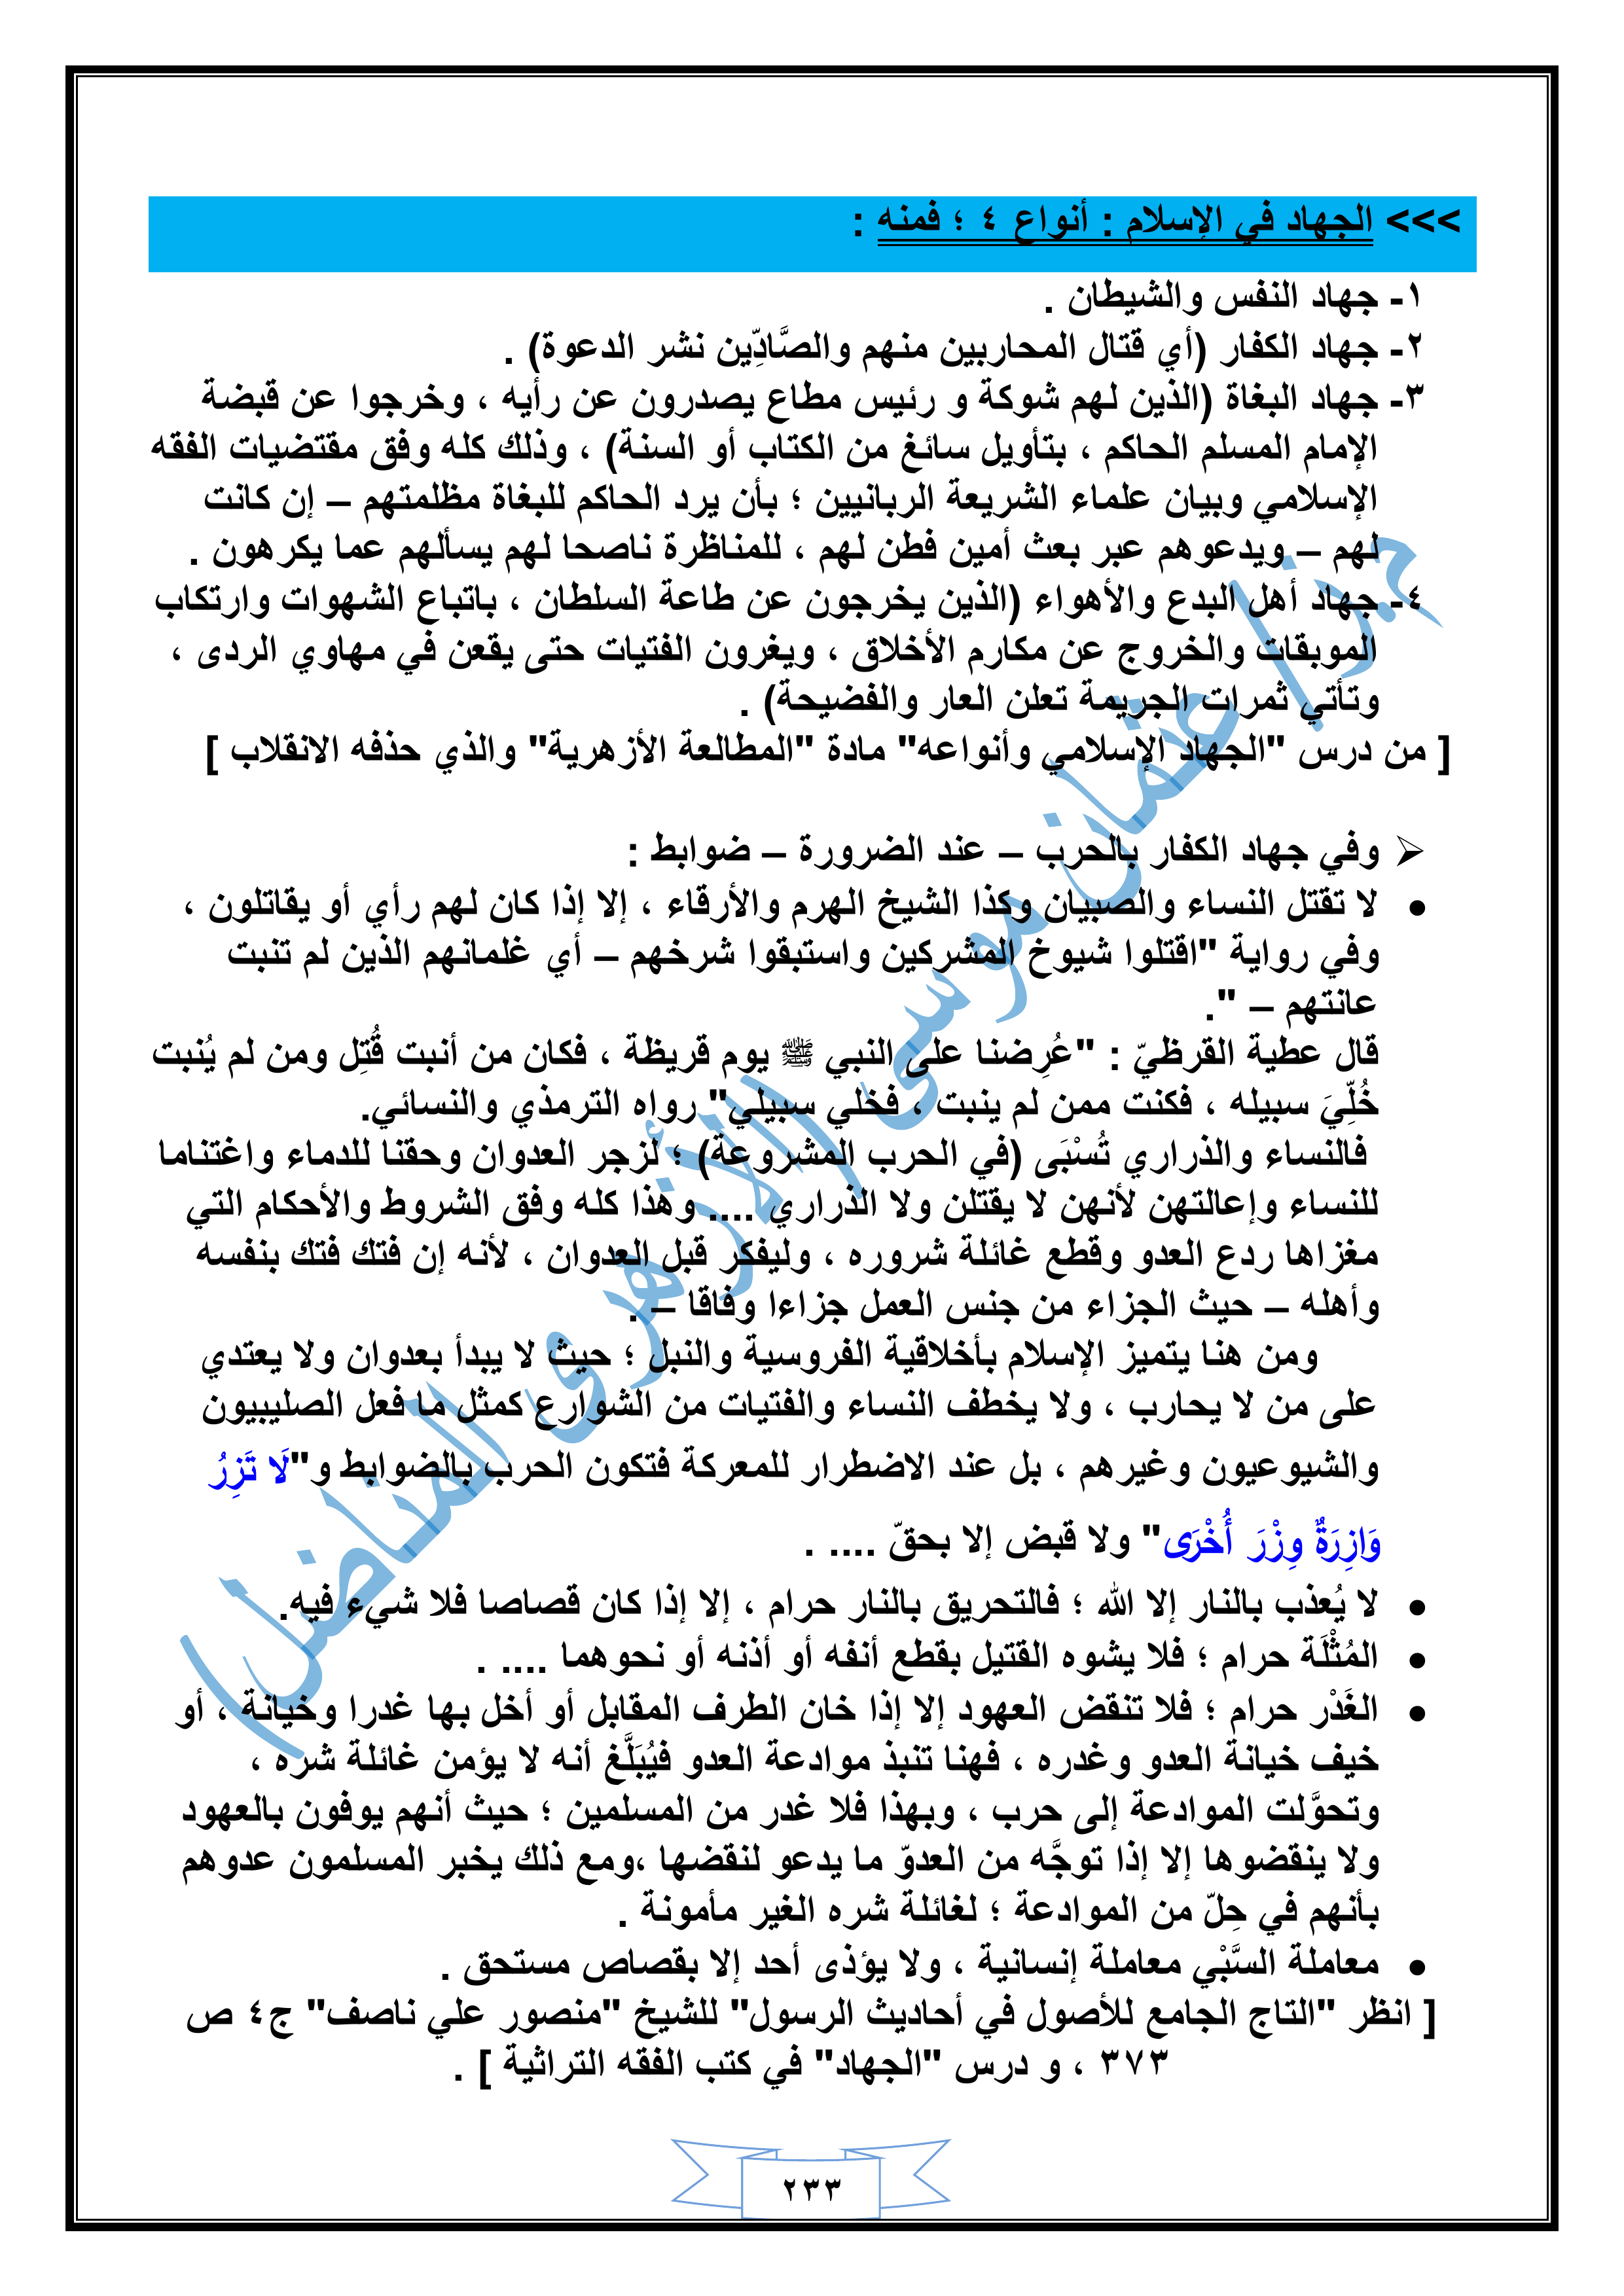 >>> الجهاد في الإسلام : أنواع ٤ ؛ فمنه :
١- جهاد النفس والشيطان .
٢- جهاد الكفار (أي قتال المحاربين منهم والصَّادِّين نشر الدعوة) .
٣- جهاد البغاة (الذين لهم شوكة و رئيس مطاع يصدرون عن رأيه ، وخرجوا عن قبضة
الإمام المسلم الحاكم ، بتأويل سائغ من الكتاب أو السنة) ، وذلك كله وفق مقتضيات الفقه
الإسلامي وبيان علماء الشريعة الربانيين ؛ بأن يرد الحاكم للبغاة مظلمتهم – إن كانت
لهم – ويدعوهم عبر بعث أمين فطن لهم ، للمناظرة ناصحا لهم يسألهم عما يكرهون .
٤- جهاد أهل البدع والأهواء (الذين يخرجون عن طاعة السلطان ، باتباع الشهوات وارتكاب
الموبقات والخروج عن مكارم الأخلاق ، ويغرون الفتيات حتى يقعن في مهاوي الردى ،
وتأتي ثمرات الجريمة تعلن العار والفضيحة) .
[ من درس "الجهاد الإسلامي وأنواعه" مادة "المطالعة الأزهرية" والذي حذفه الانقلاب ]
⮚ وفي جهاد الكفار بالحرب – عند الضرورة – ضوابط :
• لا تقتل النساء والصبيان وكذا الشيخ الهرم والأرقاء ، إلا إذا كان لهم رأي أو يقاتلون ،
وفي رواية "اقتلوا شيوخ المشركين واستبقوا شرخهم – أي غلمانهم الذين لم تنبت
عانتهم – ".
قال عطية القرظيّ : "عُرِضنا على النبي ﷺ يوم قريظة ، فكان من أنبت قُتِل ومن لم يُنبت
خُلِّيَ سبيله ، فكنت ممن لم ينبت ، فخلي سبيلي" رواه الترمذي والنسائي.
فالنساء والذراري تُسْبَى (في الحرب المشروعة) ؛ لزجر العدوان وحقنا للدماء واغتناما
للنساء وإعالتهن لأنهن لا يقتلن ولا الذراري .... وهذا كله وفق الشروط والأحكام التي
مغزاها ردع العدو وقطع غائلة شروره ، وليفكر قبل العدوان ، لأنه إن فتك فتك بنفسه
وأهله – حيث الجزاء من جنس العمل جزاءا وفاقا – .
ومن هنا يتميز الإسلام بأخلاقية الفروسية والنبل ؛ حيث لا يبدأ بعدوان ولا يعتدي
على من لا يحارب ، ولا يخطف النساء والفتيات من الشوارع كمثل ما فعل الصليبيون
والشيوعيون وغيرهم ، بل عند الاضطرار للمعركة فتكون الحرب بالضوابط و"لَا تَزِرُ
وَازِرَةٌ وِزْرَ أُخْرَى" ولا قبض إلا بحقّ .... .
• لا يُعذب بالنار إلا الله ؛ فالتحريق بالنار حرام ، إلا إذا كان قصاصا فلا شيء فيه.
• المُثْلَة حرام ؛ فلا يشوه القتيل بقطع أنفه أو أذنه أو نحوهما .... .
• الغَدْر حرام ؛ فلا تنقض العهود إلا إذا خان الطرف المقابل أو أخل بها غدرا وخيانة ، أو
خيف خيانة العدو وغدره ، فهنا تنبذ موادعة العدو فيُبَلَّغ أنه لا يؤمن غائلة شره ،
وتحوَّلت الموادعة إلى حرب ، وبهذا فلا غدر من المسلمين ؛ حيث أنهم يوفون بالعهود
ولا ينقضوها إلا إذا توجَّه من العدوّ ما يدعو لنقضها ،ومع ذلك يخبر المسلمون عدوهم
بأنهم في حِلّ من الموادعة ؛ لغائلة شره الغير مأمونة .
• معاملة السَّبْي معاملة إنسانية ، ولا يؤذى أحد إلا بقصاص مستحق .
[ انظر "التاج الجامع للأصول في أحاديث الرسول" للشيخ "منصور علي ناصف" ج٤ ص
٣٧٣ ، و درس "الجهاد" في كتب الفقه التراثية ] .
٢٣٣
عثمان موسى (الأزهرى المناضل)